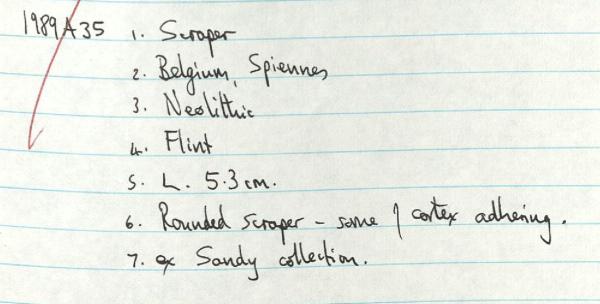 1989A35 1. Scraper
2. Belgium, Spiennes
3. Neolithic
4. Flint
5. L. 5.3 cm.
6. Rounded scraper - some of cortex adhering.
7. ex Sandy collection.